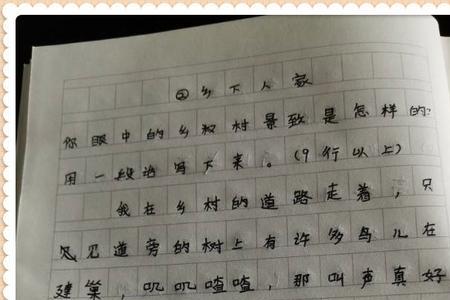 ②乡下人家
你眼中的乡村景致是怎样的?
用一段话写下来。(9行以上)
我在乡村的道路走着,只
见道旁的树上有许多鸟儿在
建巢,叽叽喳喳,那叫声真好